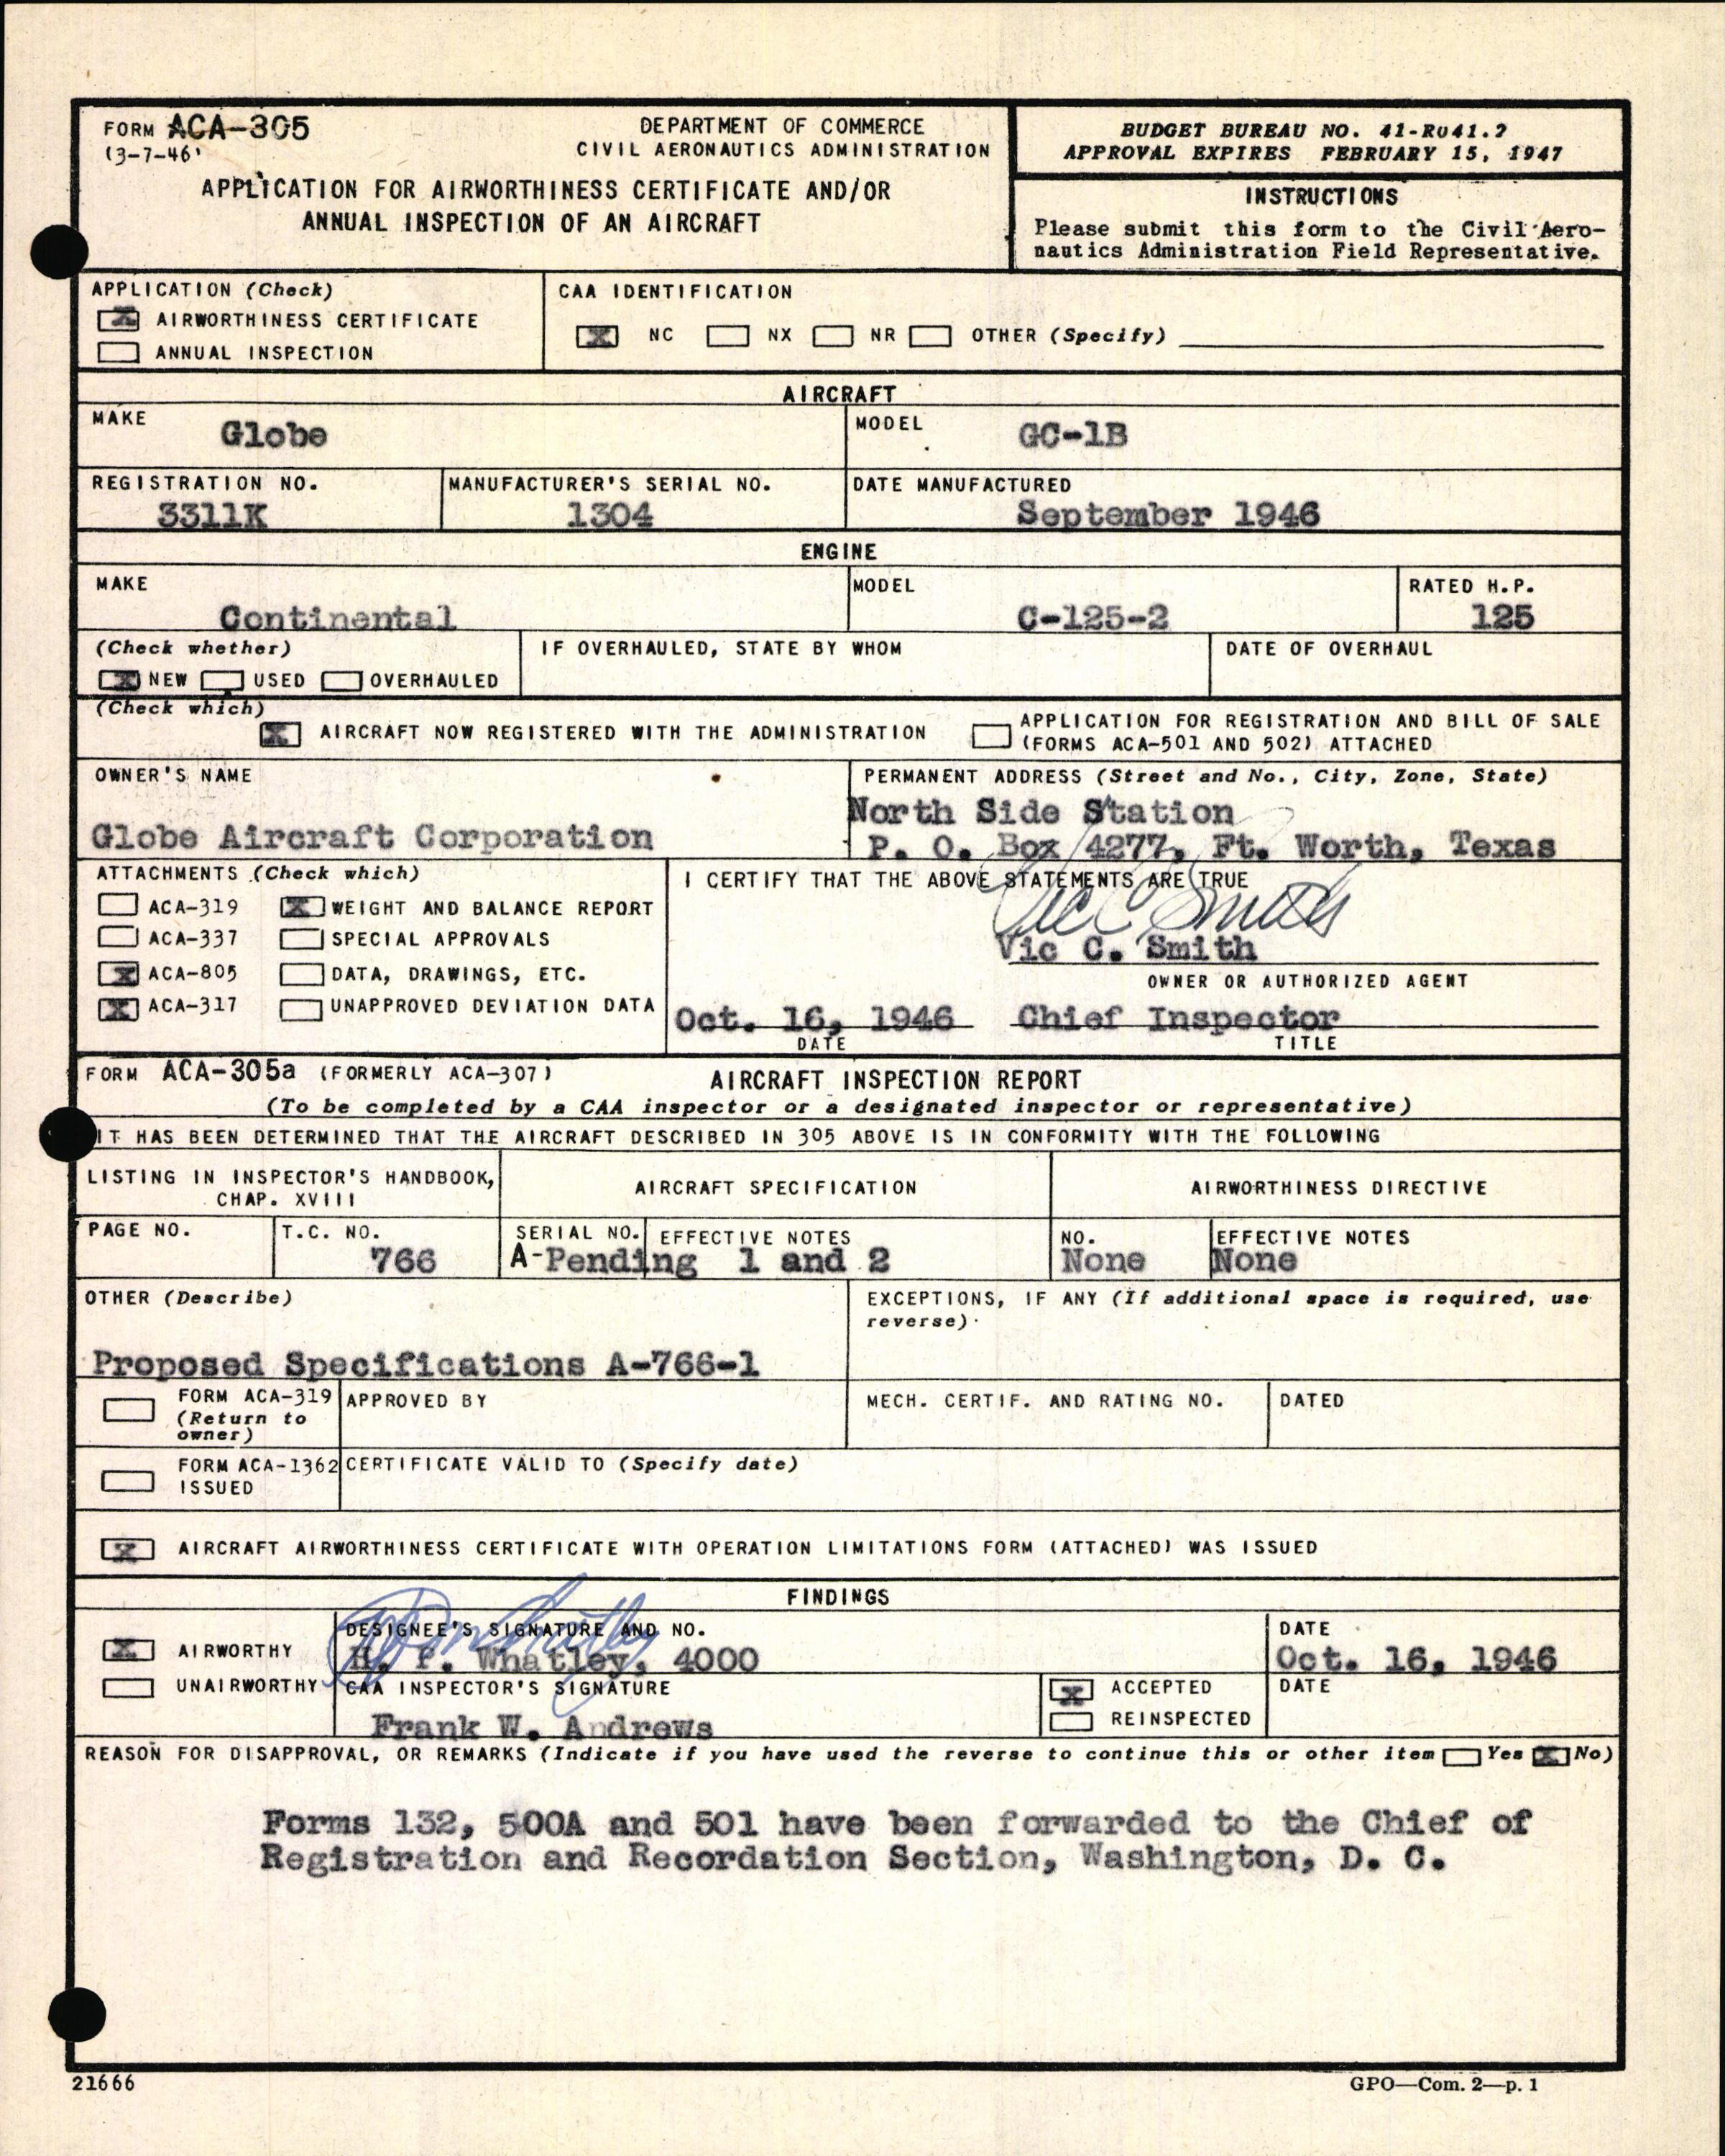 FORM ACA-305
(3-7-46)
DEPARTMENT OF COMMERCE
CIVIL AERONAUTICS ADMINISTRATION
APPLICATION FOR AIRWORTHINESS CERTIFICATE AND/OR
ANNUAL INSPECTION OF AN AIRCRAFT
BUDGET BUREAU NO. 41-R041.2
APPROVAL EXPIRES FEBRUARY 15, 1947
INSTRUCTIONS
Please submit this form to the Civil Aero-
nautics Administration Field Representative.
APPLICATION (Check)
X AIRWORTHINESS CERTIFICATE
ANNUAL INSPECTION
CAA IDENTIFICATION
X NC NX NR OTHER (Specify)
AIRCRAFT
MAKE
Globe
MODEL
GC-1B
REGISTRATION NO.
3311K
MANUFACTURER'S SERIAL NO.
1304
DATE MANUFACTURED
September 1946
ENGINE
MAKE
Continental
MODEL
C-125-2
RATED H.P.
125
(Check whether)
X NEW USED OVERHAULED
IF OVERHAULED, STATE BY WHOM
DATE OF OVERHAUL
(Check which)
X AIRCRAFT NOW REGISTERED WITH THE ADMINISTRATION
APPLICATION FOR REGISTRATION AND BILL OF SALE
(FORMS ACA-501 AND 502) ATTACHED
OWNER'S NAME
Globe Aircraft Corporation
PERMANENT ADDRESS (Street and No., City, Zone, State)
North Side Station
P. O. Box 4277, Ft. Worth, Texas
ATTACHMENTS (Check which)
ACA-319 X WEIGHT AND BALANCE REPORT
ACA-337 SPECIAL APPROVALS
X ACA-805 DATA, DRAWINGS, ETC.
X ACA-317 UNAPPROVED DEVIATION DATA
I CERTIFY THAT THE ABOVE STATEMENTS ARE TRUE
Vic C Smith
Vic C. Smith
OWNER OR AUTHORIZED AGENT
Oct. 16, 1946 Chief Inspector
DATE TITLE
FORM ACA-305a (FORMERLY ACA-307) AIRCRAFT INSPECTION REPORT
(To be completed by a CAA inspector or a designated inspector or representative)
IT HAS BEEN DETERMINED THAT THE AIRCRAFT DESCRIBED IN 305 ABOVE IS IN CONFORMITY WITH THE FOLLOWING
LISTING IN INSPECTOR'S HANDBOOK,
CHAP. XVIII
AIRCRAFT SPECIFICATION
AIRWORTHINESS DIRECTIVE
PAGE NO.
T.C. NO.
766
SERIAL NO. EFFECTIVE NOTES
A-Pending 1 and 2
NO.
None
EFFECTIVE NOTES
None
OTHER (Describe)
Proposed Specifications A-766-1
EXCEPTIONS, IF ANY (If additional space is required, use
reverse)
FORM ACA-319
(Return to
owner)
APPROVED BY
MECH. CERTIF. AND RATING NO.
DATED
FORM ACA-1362
ISSUED
CERTIFICATE VALID TO (Specify date)
X AIRCRAFT AIRWORTHINESS CERTIFICATE WITH OPERATION LIMITATIONS FORM (ATTACHED) WAS ISSUED
FINDINGS
X AIRWORTHY
UNAIRWORTHY
DESIGNEE'S SIGNATURE AND NO.
H. P. Whatley, 4000
DATE
Oct. 16, 1946
CAA INSPECTOR'S SIGNATURE
Frank W. Andrews
X ACCEPTED
REINSPECTED
DATE
REASON FOR DISAPPROVAL, OR REMARKS (Indicate if you have used the reverse to continue this or other item Yes X No)
Forms 132, 500A and 501 have been forwarded to the Chief of
Registration and Recordation Section, Washington, D. C.
21666
GPO—Com. 2—p. 1